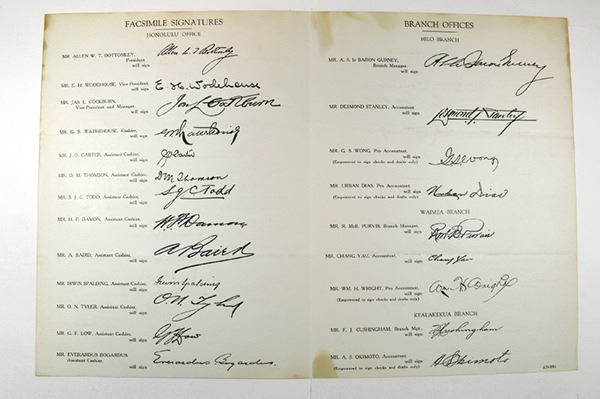 FACSIMILE SIGNATURES
HONOLULU OFFICE
MR. ALLEN W. T. BOTTOMLEY,
President
will sign
Allen W. T. Bottomley
MR. E. H. WODEHOUSE, Vice-President
will sign
E. H. Wodehouse
MR. JAS. L. COCKBURN,
Vice-President and Manager,
will sign
Jas L Cockburn
MR. G. S. WATERHOUSE, Cashier,
will sign
MR. J. O. CARTER, Assistant Cashier,
will sign
JO Carter
MR. D. M. THOMSON, Assistant Cashier,
will sign
D M Thomson
MR. S. J. C. TODD, Assistant Cashier,
will sign
SJC Todd
MR. H. F. DAMON, Assistant Cashier,
will sign
H. F. Damon
MR. A. BAIRD, Assistant Cashier,
will sign
A Baird
MR. IRWIN SPALDING, Assistant Cashier,
will sign
Irwin Spalding
MR. O. N. TYLER, Assistant Cashier,
will sign
O. N. Tyler
MR. G. F. LOW, Assistant Cashier,
will sign
G F Low
MR. EVERARDUS BOGARDUS
Assistant Cashier,
will sign
Everardus Bogardus.
BRANCH OFFICES
HILO BRANCH
MR. A. S. le BARON GURNEY,
Branch Manager,
will sign
MR. DESMOND STANLEY, Accountant
will sign
Desmond Stanley
MR. G. S. WONG, Pro Accountant,
(Empowered to sign checks and drafts only) will sign
G. S. Wong
MR. URBAN DIAS, Pro Accountant,
(Empowered to sign checks and drafts only) will sign
Urban Dias
WAIMEA BRANCH
MR. R. McB. PURVIS, Branch Manager,
will sign
MR. CHANG YAU, Accountant,
will sign
Chang Yau
MR. WM. H. WRIGHT, Pro Accountant,
(Empowered to sign checks and drafts only) will sign
Wm H Wright
KEALAKEKUA BRANCH
MR. F. J. CUSHINGHAM, Branch Mgr.,
will sign
FJ Cushingham
MR. A. S. OKIMOTO, Accountant,
(Empowered to sign checks and drafts only) will sign
A S Okimoto